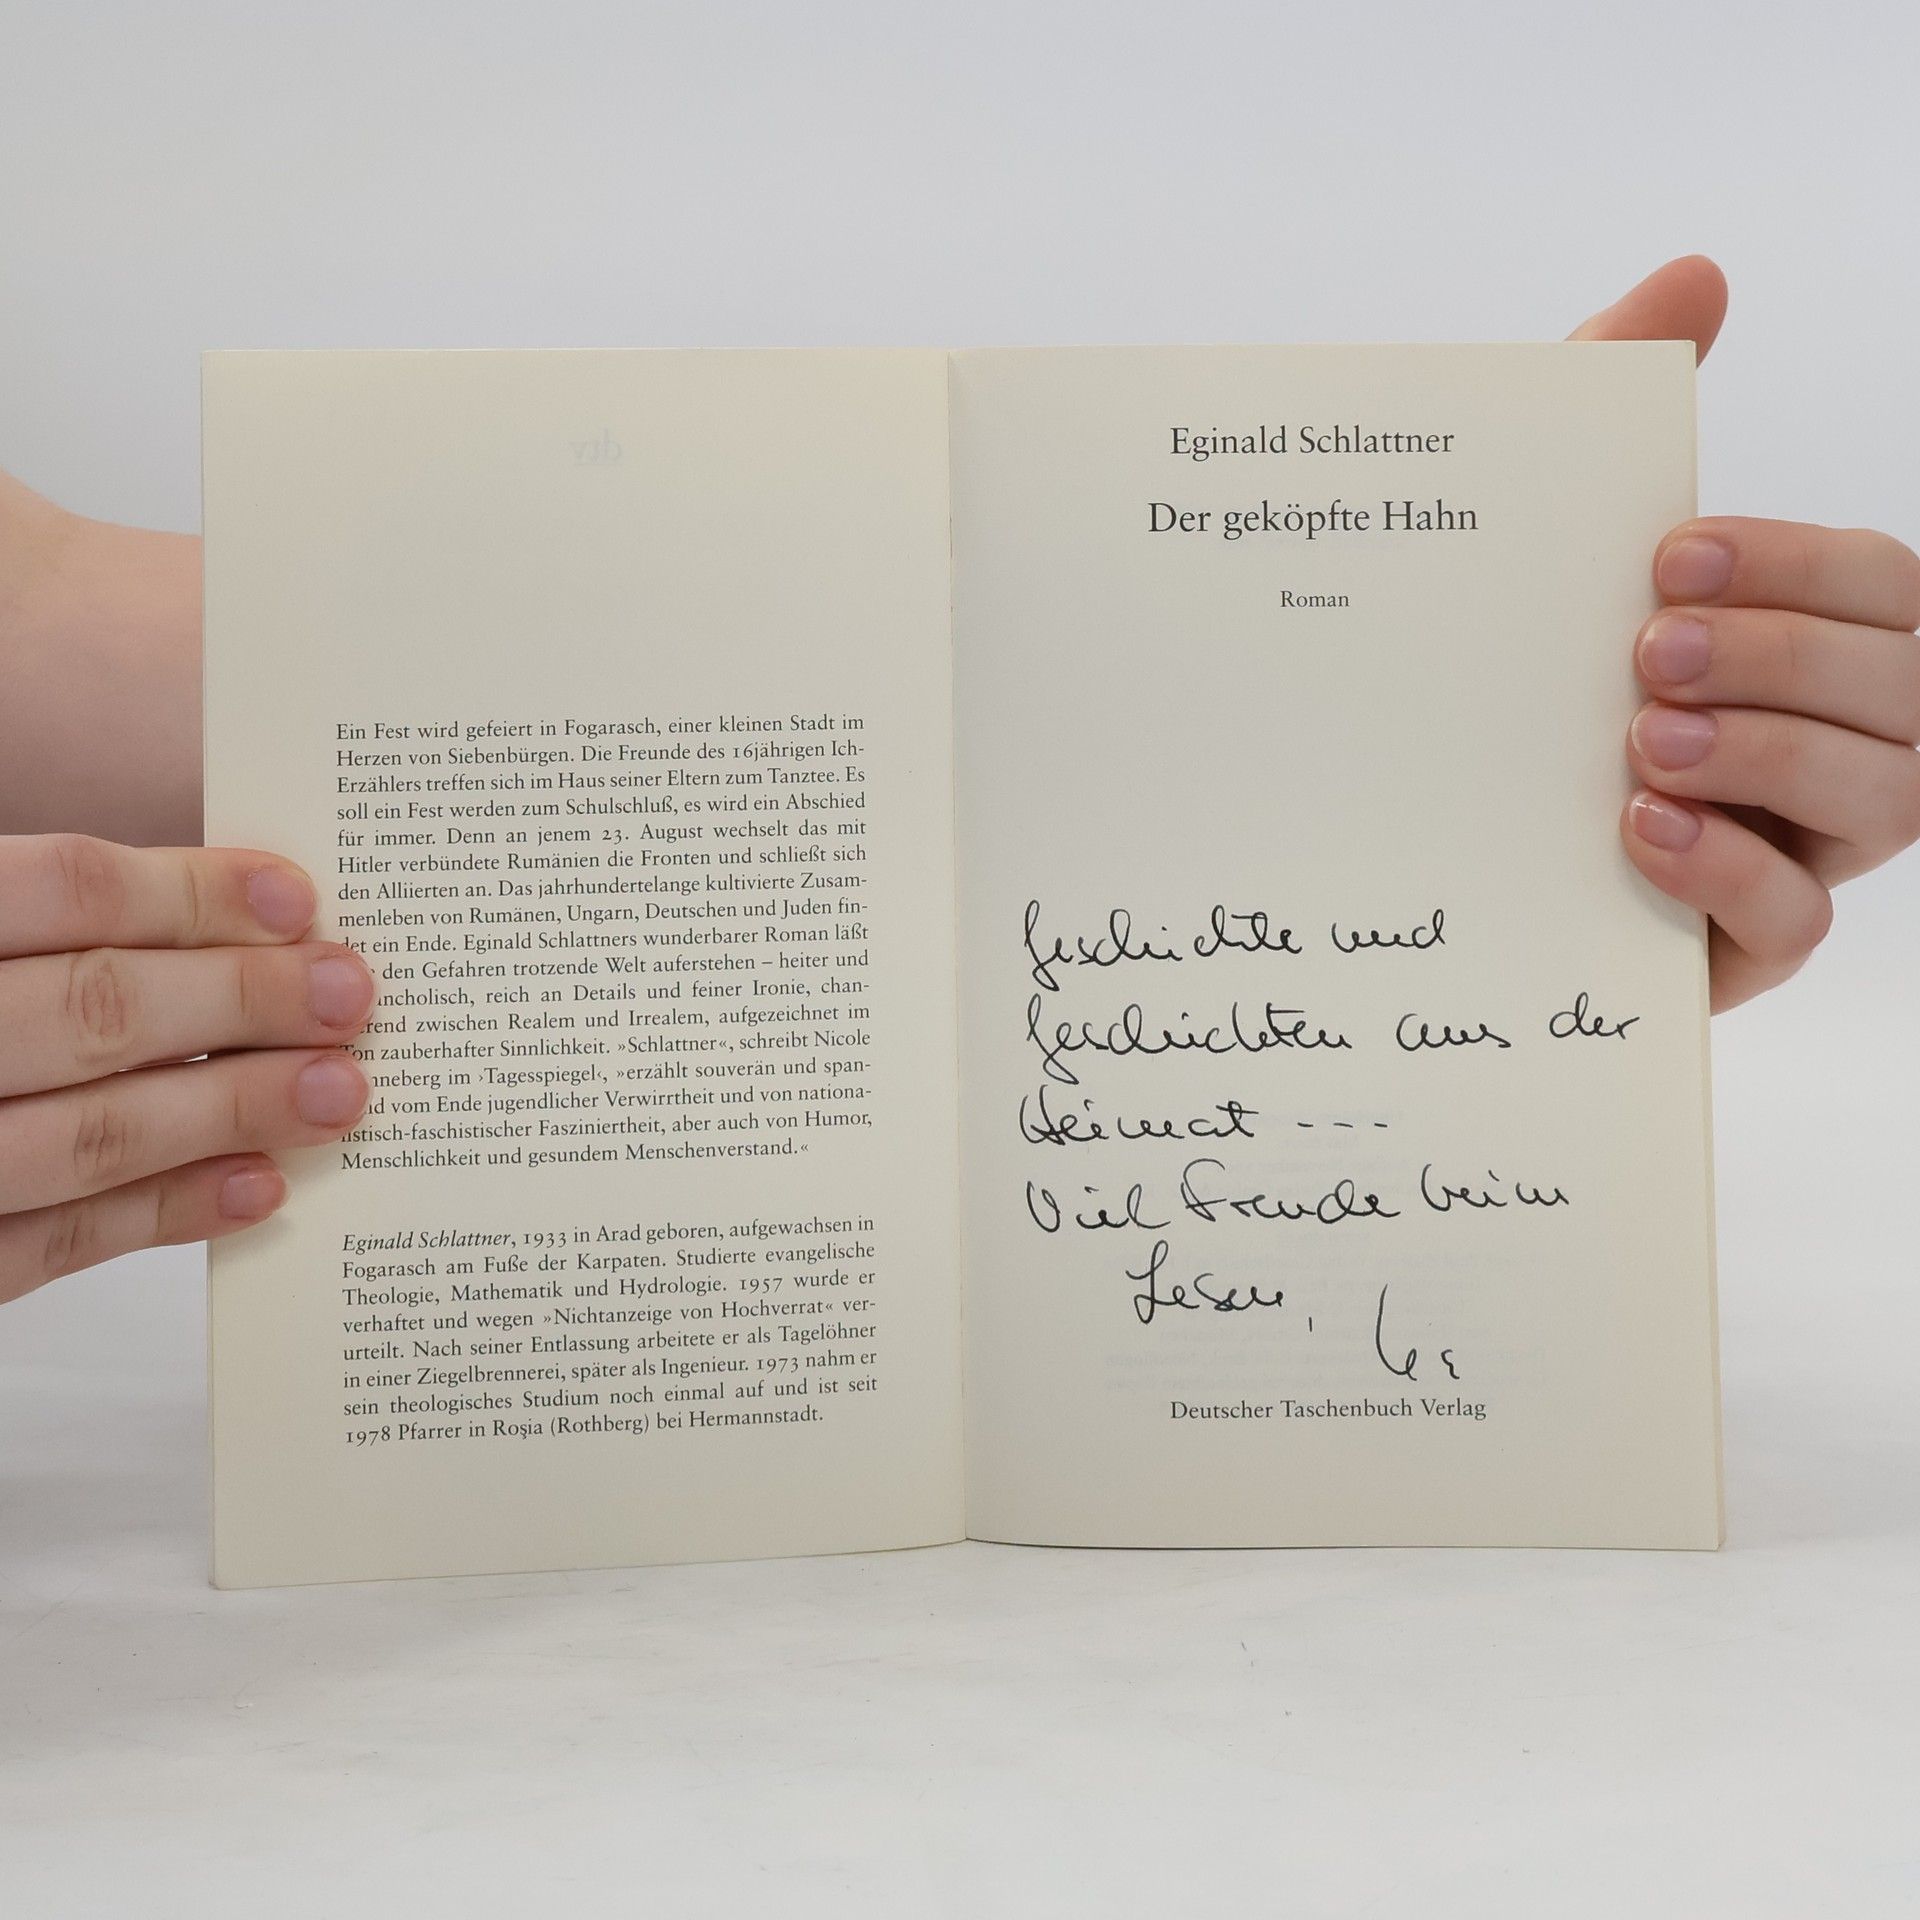 Ein Fest wird gefeiert in Fogarasch, einer kleinen Stadt im
Herzen von Siebenbürgen. Die Freunde des 16jährigen Ich-
Erzählers treffen sich im Haus seiner Eltern zum Tanztee. Es
soll ein Fest werden zum Schulschluß, es wird ein Abschied
für immer. Denn an jenem 23. August wechselt das mit
Hitler verbündete Rumänien die Fronten und schließt sich
den Alliierten an. Das jahrhundertelange kultivierte Zusam-
menleben von Rumänen, Ungarn, Deutschen und Juden fin-
det ein Ende. Eginald Schlattners wunderbarer Roman läßt
den Gefahren trotzende Welt auferstehen – heiter und
ncholisch, reich an Details und feiner Ironie, chan-
rend zwischen Realem und Irrealem, aufgezeichnet im
Ton zauberhafter Sinnlichkeit. »Schlattner«, schreibt Nicole
nneberg im ›Tagesspiegel‹, »erzählt souverän und span-
d vom Ende jugendlicher Verwirrtheit und von nationa-
listisch-faschistischer Fasziniertheit, aber auch von Humor,
Menschlichkeit und gesundem Menschenverstand.«
Eginald Schlattner, 1933 in Arad geboren, aufgewachsen in
Fogarasch am Fuße der Karpaten. Studierte evangelische
Theologie, Mathematik und Hydrologie. 1957 wurde er
verhaftet und wegen »Nichtanzeige von Hochverrat« ver-
urteilt. Nach seiner Entlassung arbeitete er als Tagelöhner
in einer Ziegelbrennerei, später als Ingenieur. 1973 nahm er
sein theologisches Studium noch einmal auf und ist seit
1978 Pfarrer in Roşia (Rothberg) bei Hermannstadt.
Eginald Schlattner
Der geköpfte Hahn
Roman
Geschichte und
Geschichten aus der
Heimat ---
Viel Freude beim
Lesen,
Deutscher Taschenbuch Verlag